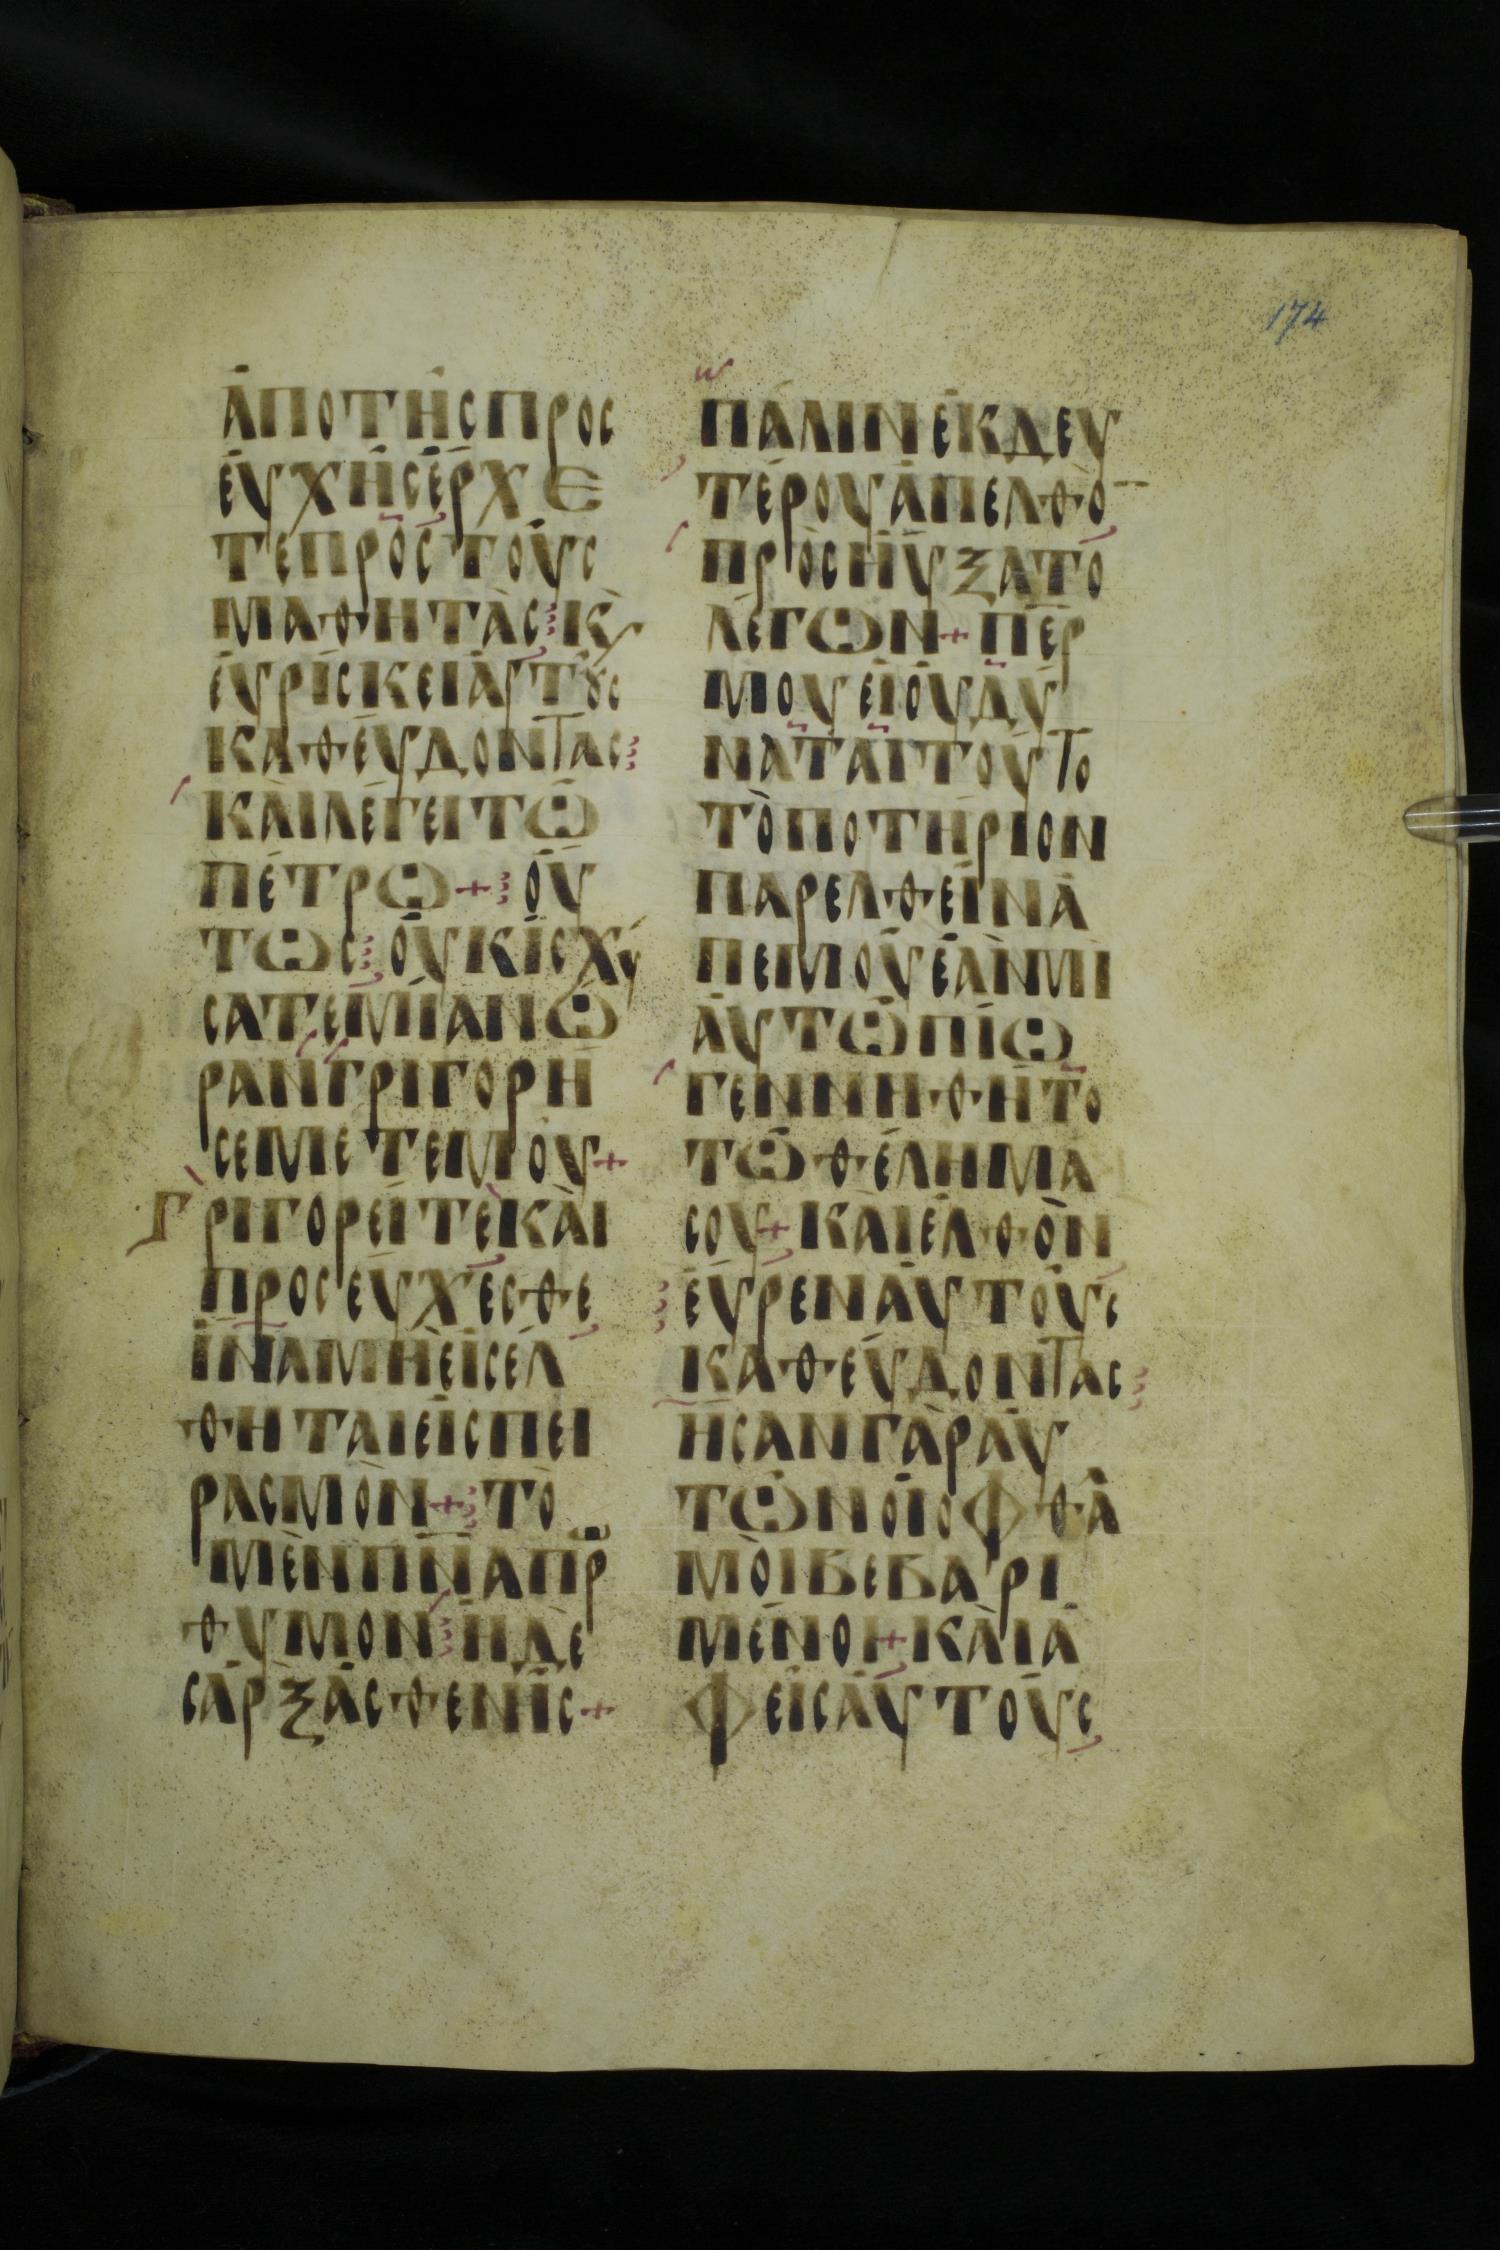 174
ἀποτῆςπρος
ευχῆςἔρχε
τεπρὸςτοὺς
μαθητὰςκ̀
ευρίσκειἀυτȣς
καθεύδοντας
καὶλέγειτῶ
πέτρω+ου
τωςουκισχύ
σατεμίανω
ρανγριγορῆ
σεμετεμου+
Γριγορεῖτεκὰι
προσευχεσθε
ἵναμὴεισέλ
θηταιεισπει
ρασμὸν+τὸ
μὲνπν̅απρο
θυμονἡδὲ
σὰρξἀσθενῆς+
πάλινἐκδευ
τέρουἀπελθὸ̅
προσηύξατο
λέγων+περ
μουειουδύ
ναταιτουτο
τὸποτήριον
παρελθεῖνἀ
πεμοῦἐὰνμὶ
ἀυτῶπίω
γεννηθήτο
τῶθέλημα
σου+κὰιἐλθὸν
ἑυρεναυτοὺς
καθεύδοντας
ῆσανγὰραυ
τῶνοἱοφθα
μοὶβεβαρι
μένοι+κὰιἀ
φεὶςἀυτοὺς